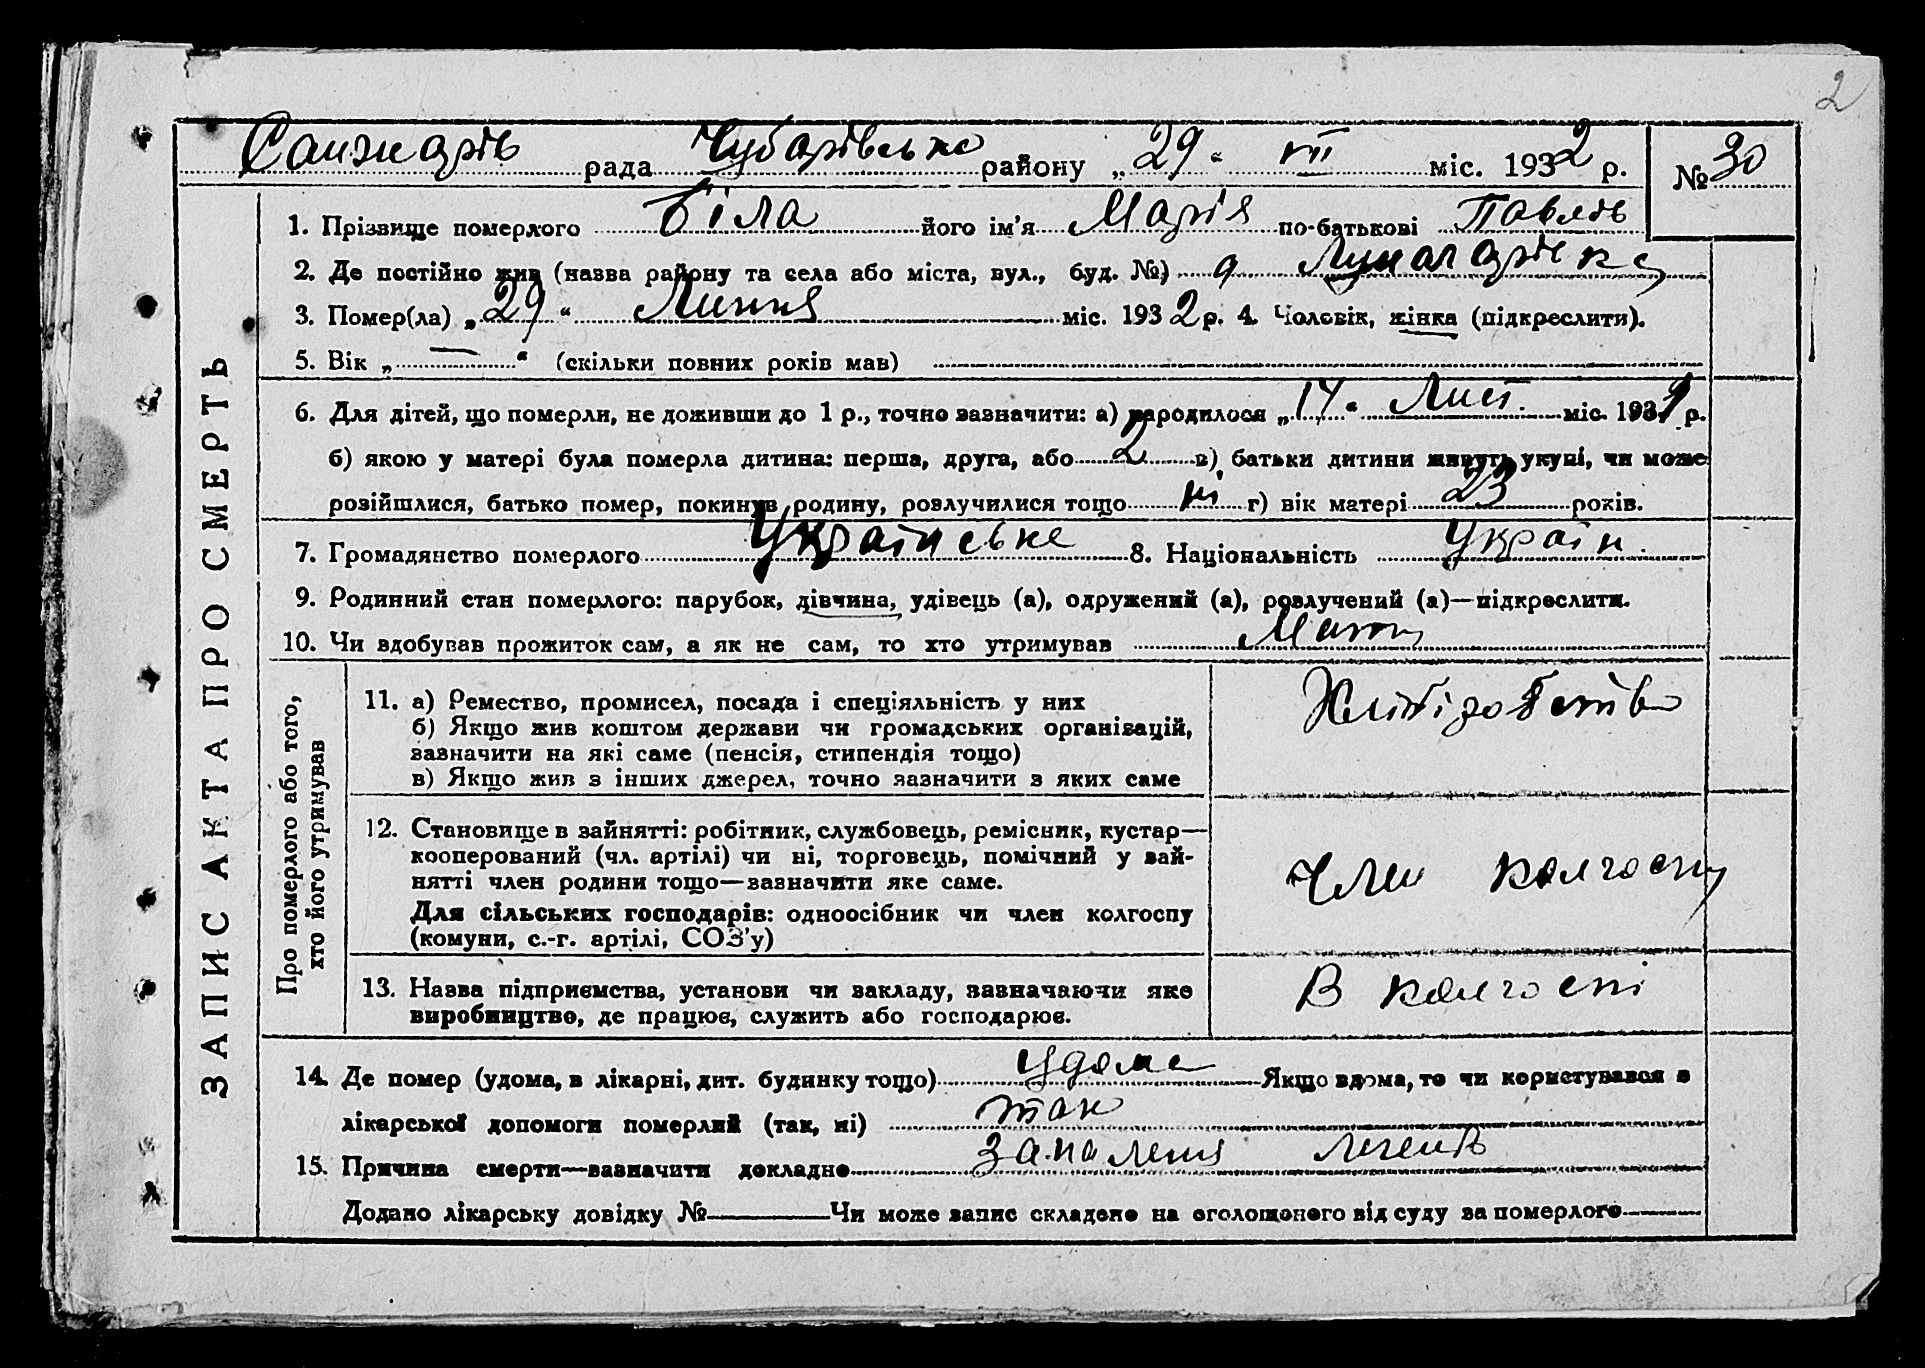 2
Санжарів рада Чубарівсько району „29“ VII міс. 1932 р. № 30
1. Прізвище померлого Біла його ім'я Марія по-батькові Павлів
2. Де постійно жив (назва району та села або міста, вул., буд. №)
3. Помер(ла) „29“ Липня міс. 1932 р. 4. Чоловік, жінка (підкреслити).
5. Вік „—“ (скільки повних років мав)
6. Для дітей, що померли, не доживши до 1 р., точно зазначити: а) народилося „14“ Лист. міс. 1931 р.
б) якою у матері була померла дитина: перша, друга, або 2 в) батьки дитини живуть укупі, чи може
розійшлися, батько помер, покинув родину, розлучилися тощо ні г) вік матері 23 років.
7. Громадянство померлого Українське 8. Національність Україн.
9. Родинний стан померлого: парубок, дівчина, удівець (а), одружений (а), розлучений (а)—підкреслити.
10. Чи вдобував прожиток сам, а як не сам, то хто утримував Мати
ЗАПИС АКТА ПРО СМЕРТЬ
Про померлого або того,
хто його утримував
11. а) Ремество, промисел, посада і спеціяльність у них
б) Якщо жив коштом держави чи громадських організацій,
зазначити на які саме (пенсія, стипендія тощо)
в) Якщо жив з інших джерел, точно зазначити з яких саме
12. Становище в зайнятті: робітник, службовець, ремісник, кустар—
кооперований (чл. артілі) чи ні, торговець, помічний у зай-
нятті член родини тощо—зазначити яке саме.
Для сільських господарів: одноосібник чи член колгоспу
(комуни, с.-г. артілі, СОЗ'у)
Член колгоспу
13. Назва підприємства, установи чи закладу, зазначаючи яке
виробництво, де працює, служить або господарює.
В колгоспі
14. Де помер (удома, в лікарні, дит. будинку тощо) удома Якщо вдома, то чи користувався з
лікарської допомоги померлий (так, ні) так
15. Причина смерти—зазначити докладно запаленя легенів
Додано лікарську довідку №—Чи може запис складено на оголошеного від суду за померлого—